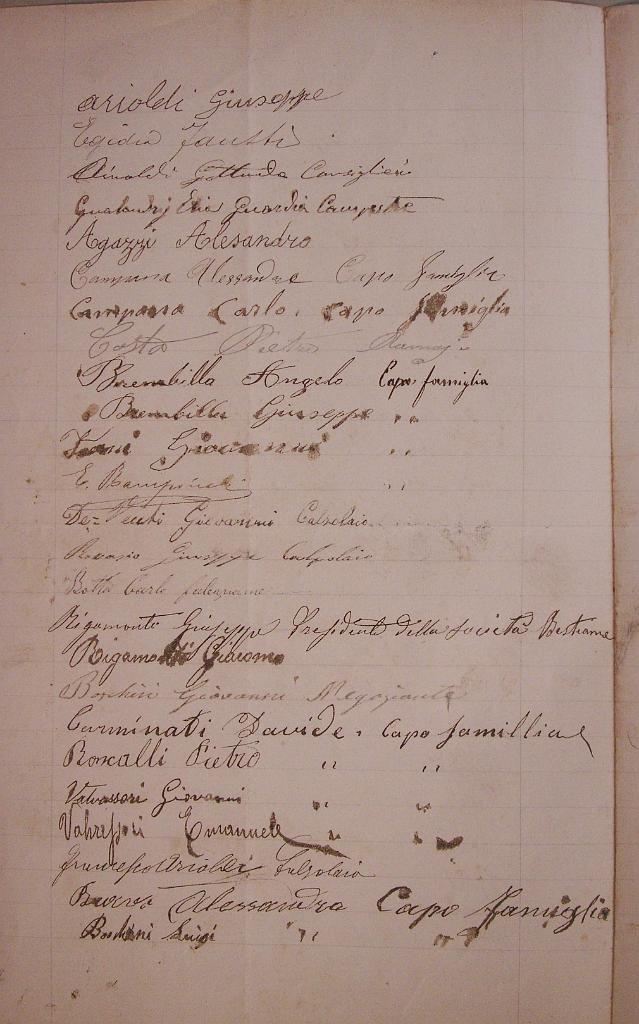 Arioldi Giuseppe
Egidio Fausti
Gottardo Consigliere
Gualandri Elia Guardia Campestre
Agazzi Alesandro
Campana Alessandro Capo famiglia
Campana Carlo. capo famiglia
Costa Pietro
Brembilla Angelo Capo famiglia
Brembilla Giuseppe " "
Giovanni " "
E. Bampinelli "
Giovanni Calzolaio
Rovasio Giuseppe Calzolaio
Botta Carlo falegname
Rigamonti Giuseppe Presidente della società Bestiame
Rigamonti Giacomo
Boschini Giovanni Negoziante
Carminati Davide. Capo famillia
Roncalli Pietro " "
Valvassori Giovanni " "
Emanuele " "
Francesco Arioldi Calzolaio
Alessandro Capo famiglia
Boschini Luigi " "